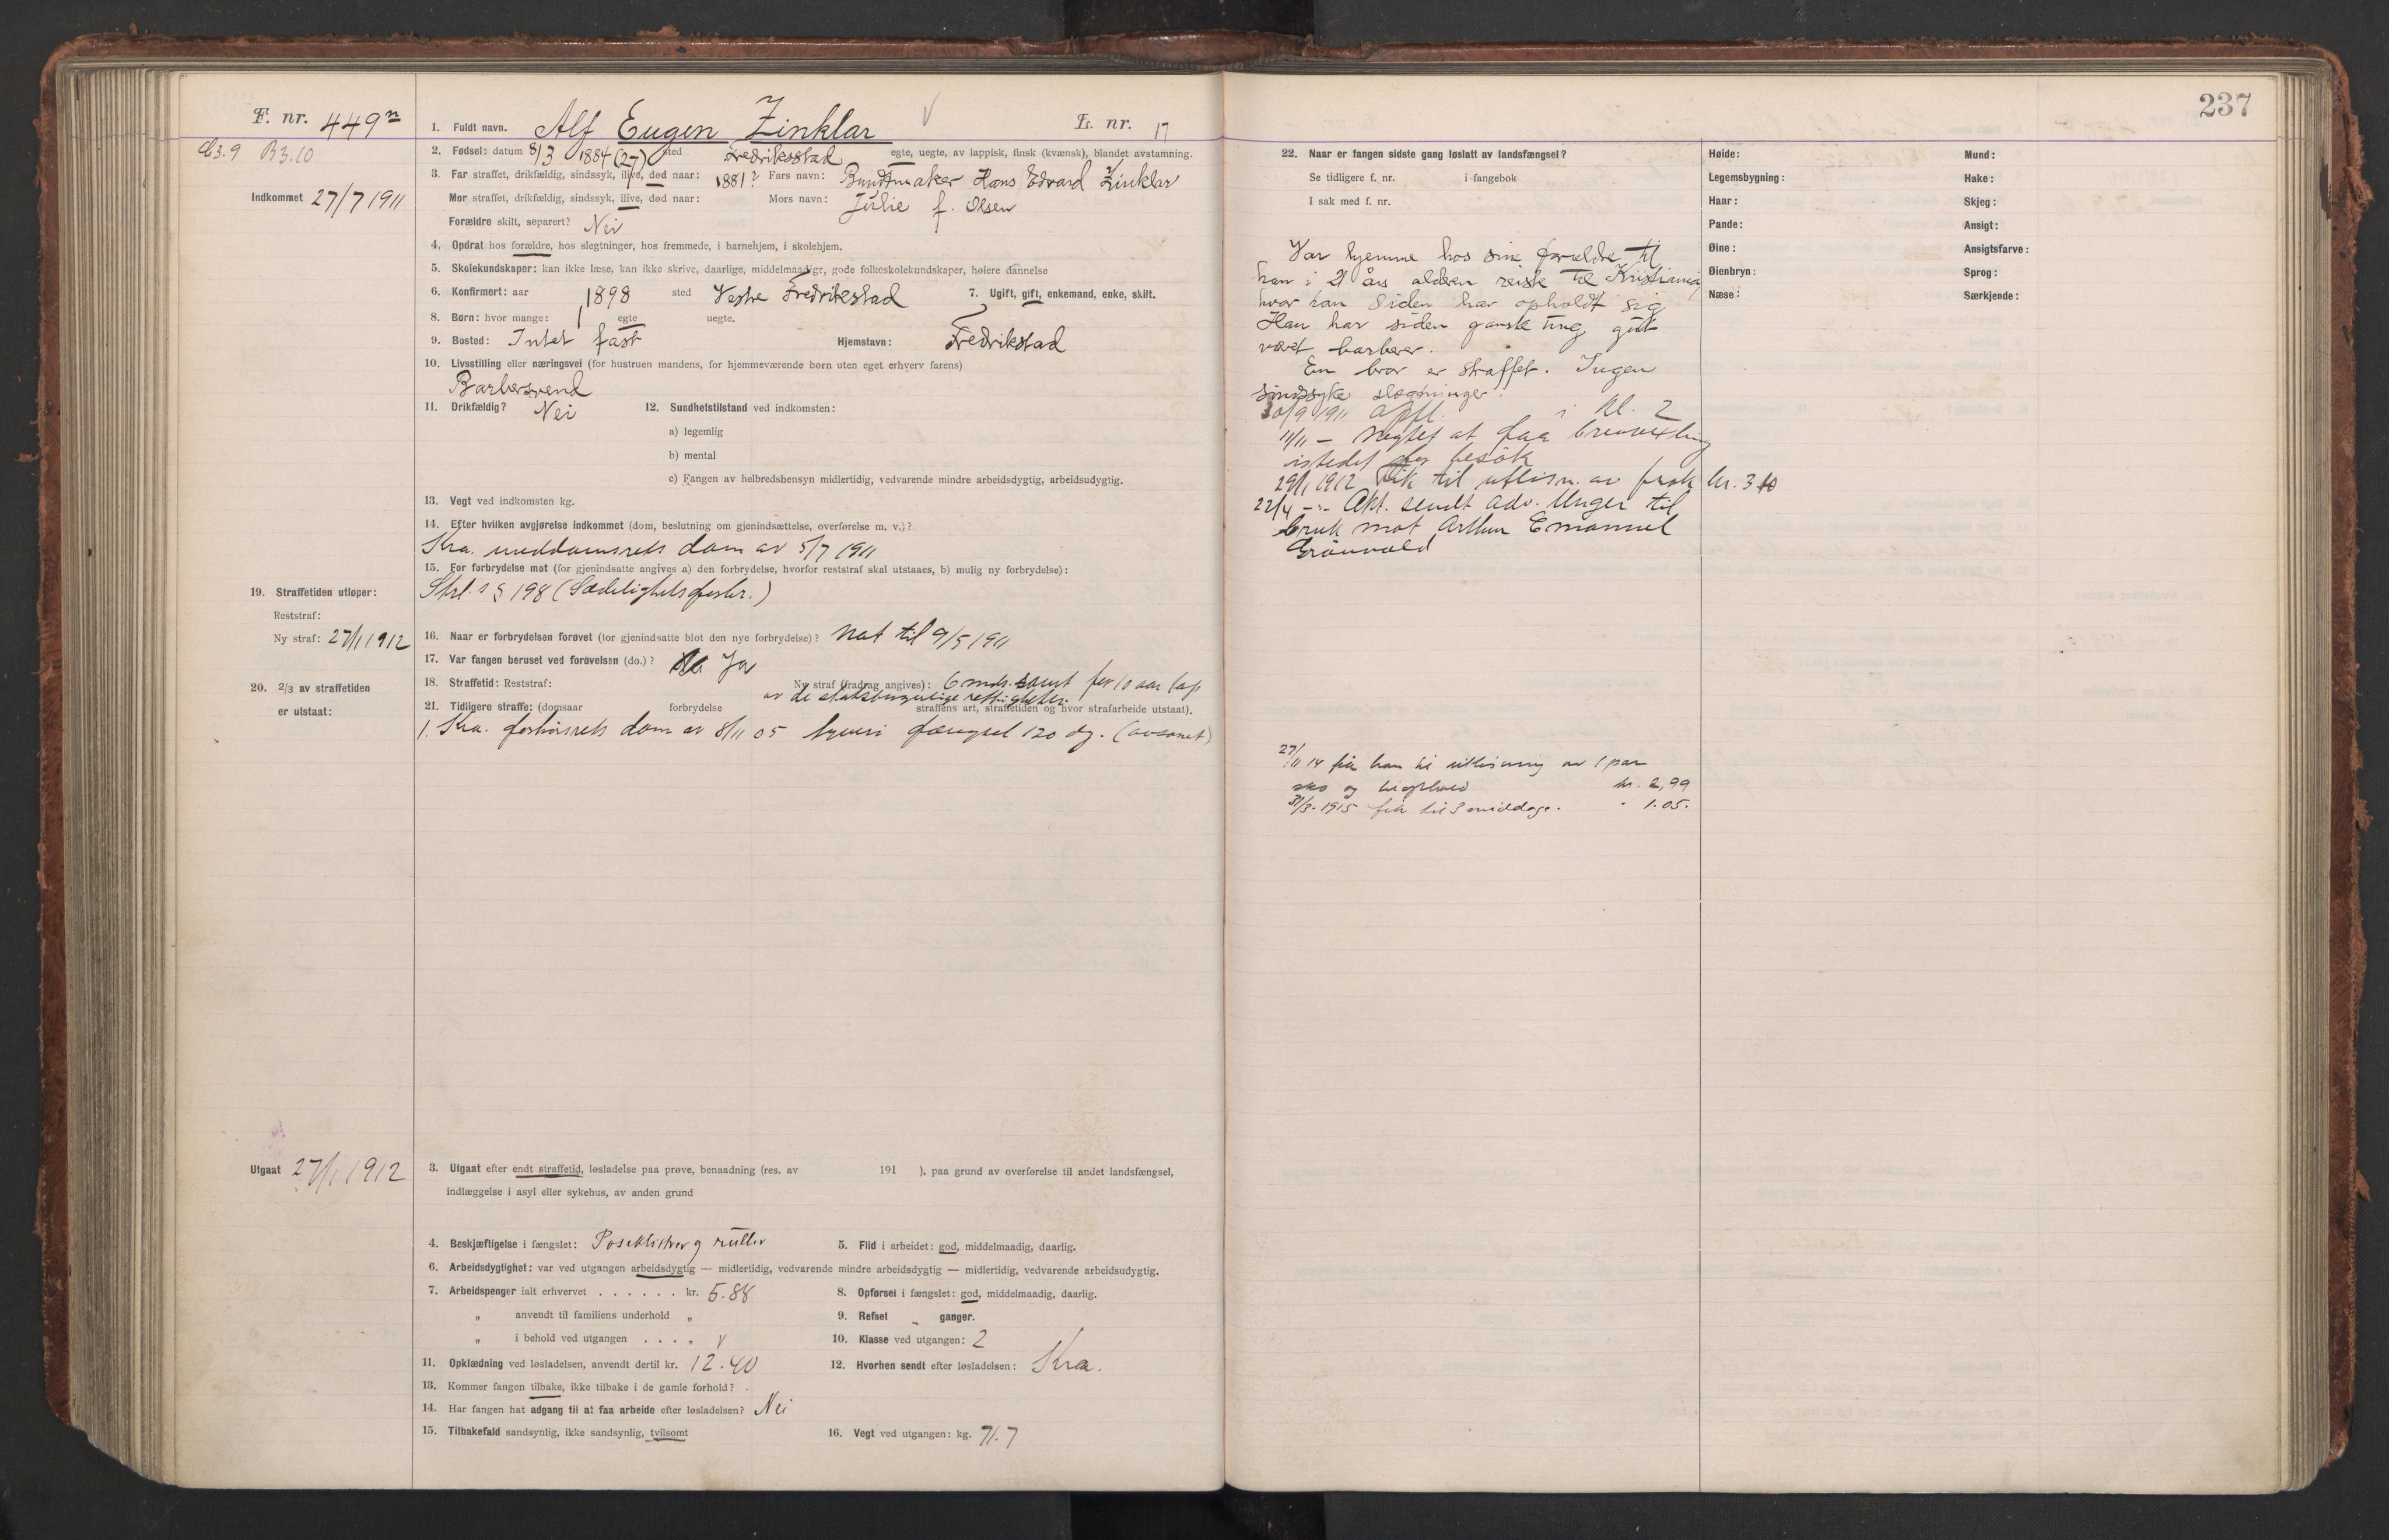 F. nr. 449 n
C3.9 B3.10
1. Fuldt navn. Alf Eugen Zinklar V L. nr. 17
2. Fødsel: datum 8/3 1884 (27) sted Fredriksstad egte, uegte, av lappisk, finsk (kvænsk), blandet avstamning.
3. Far straffet, drikfældig, sindssyk, ilive, død naar: 1881? Fars navn: Bundtmaker Hans Edvard Zinklar
Indkommet 27/7 1911
Mor straffet, drikfældig, sindssyk, ilive, død naar: Mors navn: Julie f. Olsen
Forældre skilt, separert? Nei
4. Opdrat hos forældre, hos slegtninger, hos fremmede, i barnehjem, i skolehjem.
5. Skolekundskaper: kan ikke læse, kan ikke skrive, daarlige, middelmaadige, gode folkeskolekundskaper, høiere dannelse
6. Konfirmert: aar 1898 sted Vestre Fredrikstad 7. Ugift, gift, enkemand, enke, skilt.
8. Børn: hvor mange: 1 egte uegte.
9. Bosted: Intet fast Hjemstavn: Fredrikstad
10. Livsstilling eller næringsvei (for hustruen mandens, for hjemmeværende børn uten eget erhverv farens)
Barbersvend
11. Drikfældig? Nei 12. Sundhetstilstand ved indkomsten:
a) legemlig
b) mental
c) Fangen av helbredshensyn midlertidig, vedvarende mindre arbeidsdygtig, arbeidsudygtig.
13. Vegt ved indkomsten kg.
14. Efter hvilken avgjørelse indkommet (dom, beslutning om gjenindsættelse, overførelse m. v.)?
Kra. meddomsrets dom av 5/7 1911
15. For forbrydelse mot (for gjenindsatte angives a) den forbrydelse, hvorfor reststraf skal utstaaes, b) mulig ny forbrydelse):
Strl.s § 198 (Sædelighetsforbr.)
19. Straffetiden utløper:
Reststraf:
Ny straf: 27/1 1912
16. Naar er forbrydelsen forøvet (for gjenindsatte blot den nye forbrydelse)? Nat til 9/5 1911
17. Var fangen beruset ved forøvelsen (do.)? Ja
18. Straffetid: Reststraf: Ny straf (fradrag angives): 6 mdr. samt for 10 aar tap
av de statsborgerlige rettigheter.
20. 2/3 av straffetiden
er utstaat:
21. Tidligere straffe: (domsaar forbrydelse straffens art, straffetiden og hvor strafarbeide utstaat).
1. Kra. forhørsrets dom av 8/11 05 tyveri fængsel 120 dg. (avsonet)
Utgaat 27/1 1912
3. Utgaat efter endt straffetid, løsladelse paa prøve, benaadning (res. av 191 ), paa grund av overførelse til andet landsfængsel,
indlæggelse i asyl eller sykehus, av anden grund
4. Beskjæftigelse i fængslet: Poseklistrer og ruller 5. Flid i arbeidet: god, middelmaadig, daarlig.
6. Arbeidsdygtighet: var ved utgangen arbeidsdygtig — midlertidig, vedvarende mindre arbeidsdygtig — midlertidig, vedvarende arbeidsudygtig.
7. Arbeidspenger ialt erhvervet . . . . . . kr. 5.88 8. Opførsel i fængslet: god, middelmaadig, daarlig.
" anvendt til familiens underhold " 9. Refset - ganger.
" i behold ved utgangen . . . " 10. Klasse ved utgangen: 2
11. Opklædning ved løsladelsen, anvendt dertil kr. 12.40 12. Hvorhen sendt efter løsladelsen: Kra.
13. Kommer fangen tilbake, ikke tilbake i de gamle forhold?
14. Har fangen hat adgang til at faa arbeide efter løsladelsen? Nei
15. Tilbakefald sandsynlig, ikke sandsynlig, tvilsomt 16. Vegt ved utgangen: kg. 71.7
237
22. Naar er fangen sidste gang løslatt av landsfængsel?
Se tidligere f. nr. i fangebok
I sak med f. nr.
Høide: Mund:
Legemsbygning: Hake:
Haar: Skjeg:
Pande: Ansigt:
Øine: Ansigtsfarve:
Øienbryn: Sprog:
Næse: Særkjende:
Var hjemme hos sine forældre til
han i 21 års alderen reiste til Kristiania
hvor han siden har opholdt sig
Han har siden ganske ung gut
været barberer.
En bror er straffet. Ingen
sindssyke slægtninger.
30/9 1911 opfl. i kl. 2
11/11 — Negtet at faa brevvexling
istedet for besök
29/1 1912 Fik til utløsn. av frak kr. 3
22/4 -"- Akt. sendt adv. Unger til
bruk mot Arthur Emanuel
Grönvold
27/11 14 fik han til utløsning av 1 par
sko og kr. 2,99
31/3. 1915 fik til 3 middage. " 1.05.